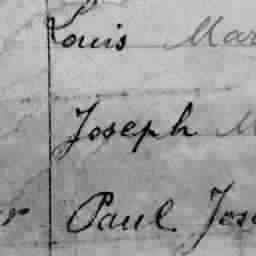 Louis Mar
Joseph M
r Paul Jose